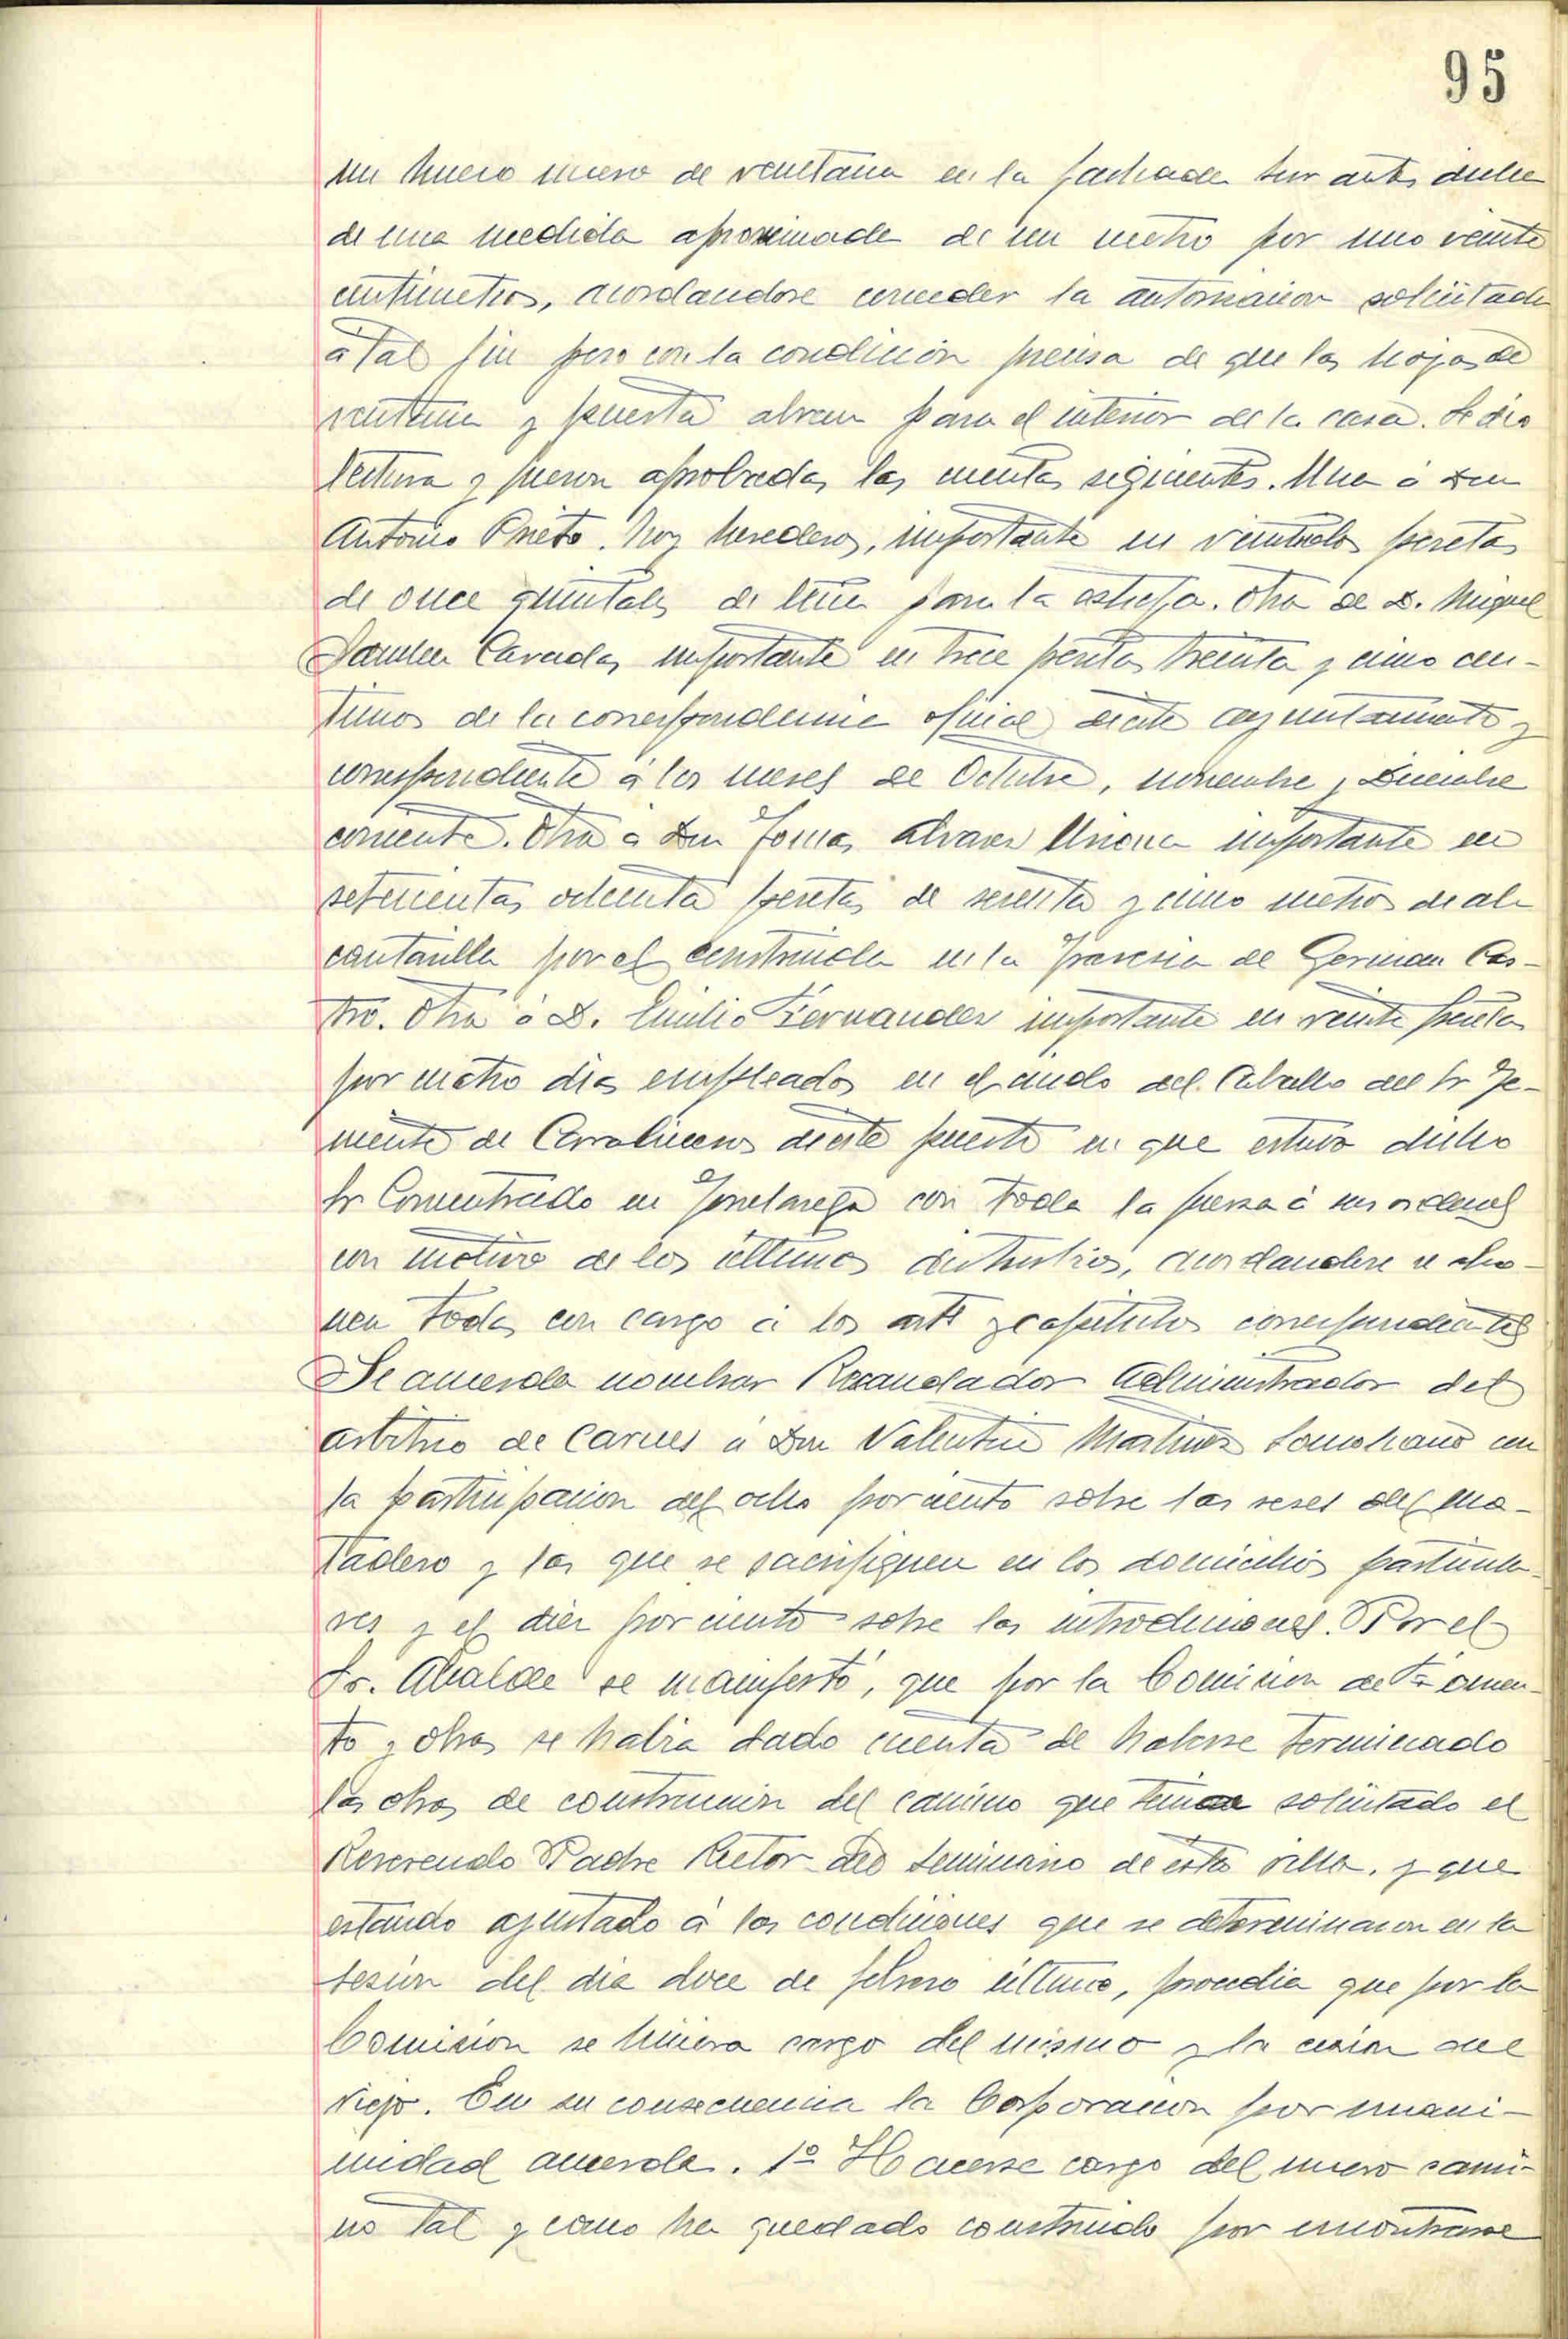 95
un hueco nuevo de ventana en la fachada Sur antes dicha
de una medida aproximada de un metro por uno veinte
centimetros, acordandose conceder la autorizacion solicitada
á tal fin pero con la condición precisa de que las hojas de
ventana y puerta abran para el interior de la casa. Se dió
lectura y fueron aprobadas las cuentas siguientes. Una á Don
Antonio Prieto. hoy herederos, importante en veintidos pesetas
de once quintales de leña para la estufa. Otra de D. Miguel
Cavadas importante en trece pesetas treinta y cinco cen-
timos de la correspondencia oficial de este ayuntamiento y
correspondiente á los meses de Octubre, noviembre y Diciembre
corriente. Otra á Don Tomas Alvarez importante en
setecientas ochenta pesetas de sesenta y cinco metros de al-
cantarilla por el construida en la travesia de German Cas-
tro. Otra á D. Emilio Fernandez importante en veinte pesetas
por cuatro dias empleados en el cuido del Caballo del Sr Te-
niente de Carabineros de este puesto en que estuvo dicho
Sr Concentrado en Torrelavega con toda la fuerza á sus ordenes
con motivo de los ultimos disturbios, acordandose se abo-
nen todas con cargo á los artos y capitulos correspondientes
Se acuerda nombrar Recaudador Administrador del
arbitrio de Carnes á Don Valentin Martinez Somohano con
la participacion del ocho por ciento sobre las reses del Ma-
tadero y las que se sacrifiquen en los domicilios particula-
res y el diez por ciento sobre las introducciones. Por el
Sr. Abalde se manifestó, que por la Comision de Fomen-
to y obras se habia dado cuenta de haberse terminado
las obras de construccion del camino que tenia solicitado el
Reverendo Padre Rector del Seminario de esta villa, y que
estando ajustado á las condiciones que se determinaron en la
sesión del dia doce de febrero último, procedia que por la
Comision se hiciera cargo del mismo y la cesion del
viejo. En su consecuencia la Corporacion por unani-
midad acuerda. 1º Hacerse cargo del nuevo cami-
no tal y como ha quedado construido por encontrarse